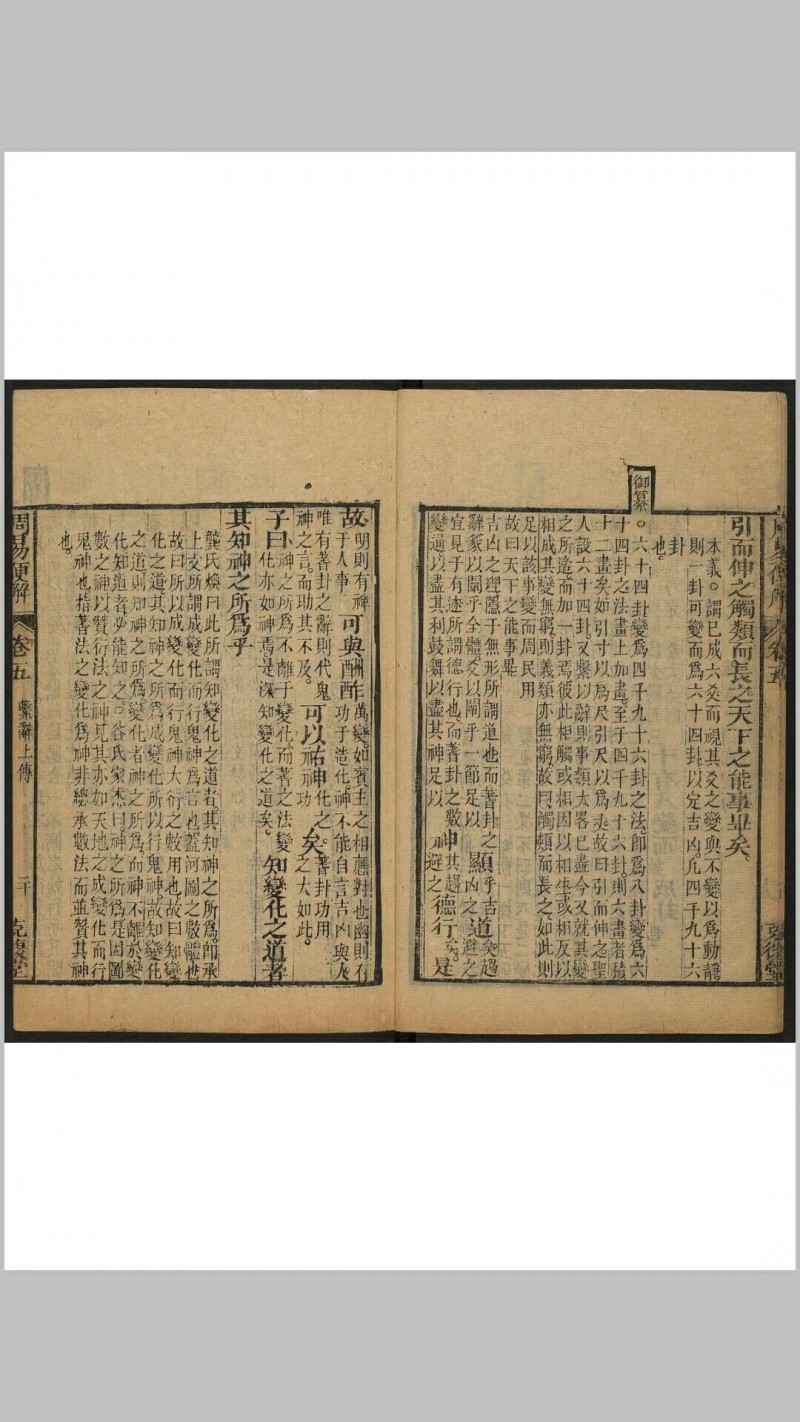 引而伸之觸類而長之天下之能事畢矣。
本義。謂已成六爻而視其爻之變與不變以爲動靜
則一卦可變而爲六十四卦以定吉凶。凡四千九十六
卦也。
御纂
。六十四卦變爲四千九十六卦之法。即爲八卦變爲六
十四卦之法。畫上加畫。至于四千九十六卦。則六畫者積
十二畫矣。如引寸以爲尺引尺以爲丈故曰引而伸之聖
人設六十四卦又繫以辭則事類大畧已盡今又就其變
之所適而加一卦焉彼此相觸或相因以相生或相反以
相成其變無窮。則義類亦無窮。故曰觸類而長之。如此則
足以該事變而周民用
故曰天下之能事畢
顯乎吉凶之理隱于無形所謂道也而蓍卦之辭彖以闡乎全體爻以闡乎一節足以
道矣趨避之宜見于有迹所謂德行也而蓍卦之數
神其趨避之德行矣。是
變通以盡其利鼓舞以盡其神足以
故明則有禆于人事
可與酬酢萬變。如賓主之相應對也幽則有功于造化。神不能自言吉凶與人
唯有蓍卦之辭則代鬼神之言。而助其不及。可以祐神化之功矣。蓍卦功用之大如此。
子曰神之所爲不離于變化而蓍之法變化亦如神焉是深知變化之道矣。知變化之道者
其知神之所爲乎
龔氏煥曰此所謂知變化之道者其知神之所爲。卽承
上文所謂成變化而行鬼神爲言也蓋河圖之數體也
故曰所以成變化而行鬼神大衍之數用也故曰知變
化之道其知神之所爲成變化所以行鬼神。故知變化
之道則知神之所爲變化者神之所爲而神不離於變
化知道者必能知之。谷氏家杰曰神之所爲是因圖
數之神以贊衍法之神見其亦如天地之成變化而行
鬼神也指蓍法之變化爲神非總承數法而並贊其神
也。
周易便解 卷五 繫辭上傳 二十 克復堂